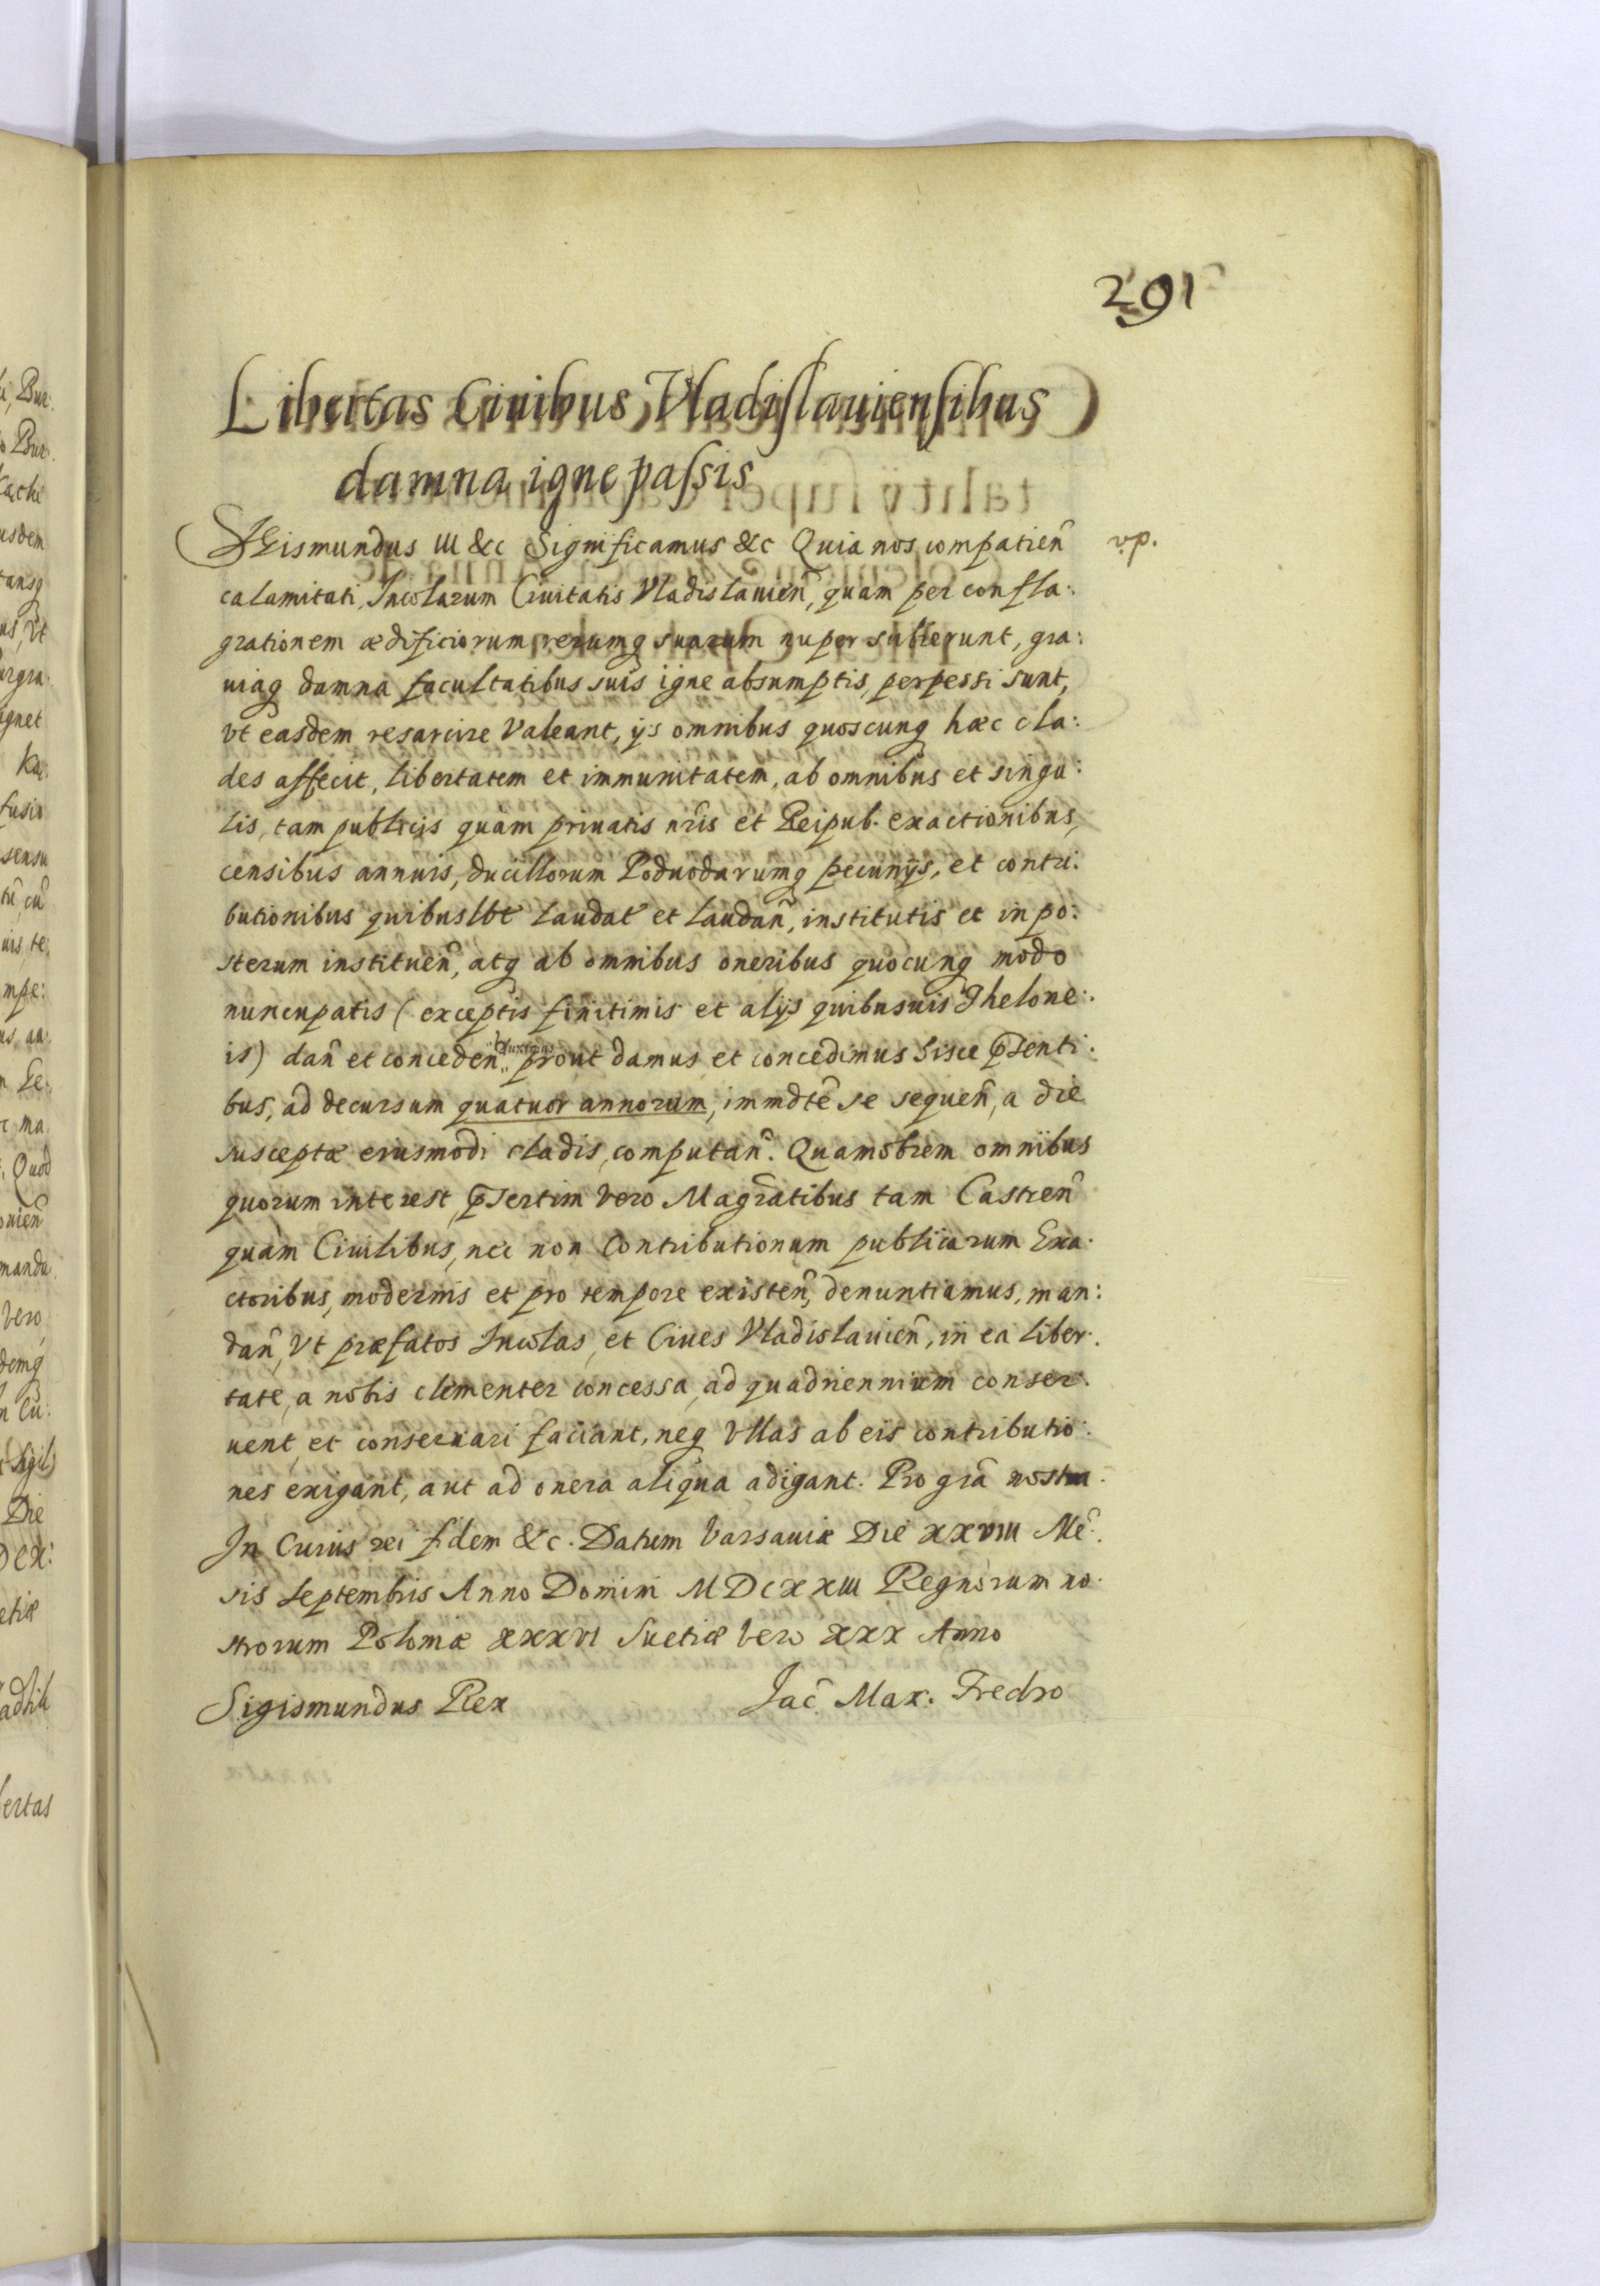 291
Libertas Ciuibus Vladislauiensibus
damna igne passis
SIgismundus III &c Significamus &c Quia nos compatien̂ v.p.
calamitati Incolarum Ciuitatis Vladislauien̂, quam per confla:
grationem ædificiorum rerumq suarum nuper subierunt, gra:
uiaq damna facultatibus suis igne absumptis, perpessi sunt,
vt easdem resarcire Valeant, ijs omnibus quoscunq hæc cla:
des affecit, libertatem et immunitatem, ab omnibus et singu:
lis, tam publicis quam priuatis nr̃is et Reipub. exactionibus,
censibus annuis, ducillorum Poduodarumq pecunijs, et contri:
butionibus quibuslbt laudat̂ et laudan̂, institutis et in po:
sterum instituen̂, atq ab omnibus oneribus quocunq modo
nuncupatis (exceptis finitimis et alijs quibusuis Thelone:
is) dan̂ et conceden̂ duximus prout damus et concedimus hisce p̃senti:
bus, ad decursum quatuor annorum, immdtê se sequen̂, a die
susceptæ eiusmodi cladis, computan̂. Quamobrem omnibus
quorum interest, p̃sertim vero Magr̃atibus tam Castren̂
quam Ciuilibus, nec non Contributionum publicarum Exa:
ctoribus, modernis et pro tempore existen̂, denuntiamus, man:
dan̂, Vt præfatos Incolas, et Ciues Vladislauien̂, in ea liber:
tate, a nobis clementer concessa, ad quadriennium conser:
uent, et conseruari faciant, neq Vllas ab eis contributio:
nes exigant, aut ad onera aliqua adigant. Pro grâ nostra.
In Cuius rei fidem &c. Datum Varsauiæ Die XXVIII Mê:
sis Septembris Anno Domini MDCXXIII Regnorum no:
strorum Poloniæ XXXVI Suetiæ Vero XXX Anno
Sigismundus Rex Jac̃. Max. Fredro